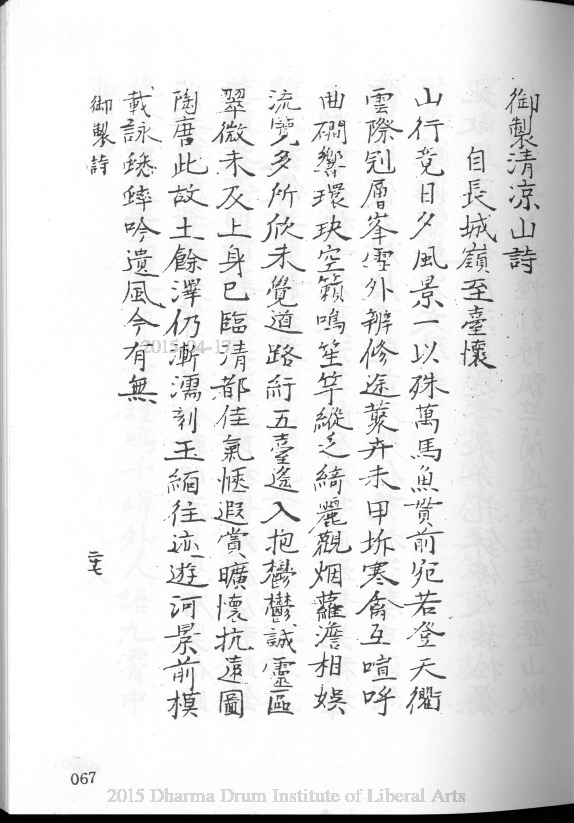 御製清凉山詩
自長城嶺至臺懷
山行竟日夕風景一以殊萬馬魚貫前宛若登天衢
雲際刓層峯雪外辨修途蘂卉未甲坼寒禽互喧呼
曲磵響環玦空籟鳴笙竽縱乏綺麗觀烟蘿澹相娛
流覽多所欣未覺道路紆五臺遙入抱鬱鬱誠靈區
翠微未及上身已臨清都佳氣愜遐賞曠懷抗遠圖
陶唐此故土餘澤仍漸濡刻玉緬往迹遊河景前模
載詠蟋蟀吟遺風今有無
御製詩
二七
2015-04-17
067
2015 Dharma Drum Institute of Liberal Arts